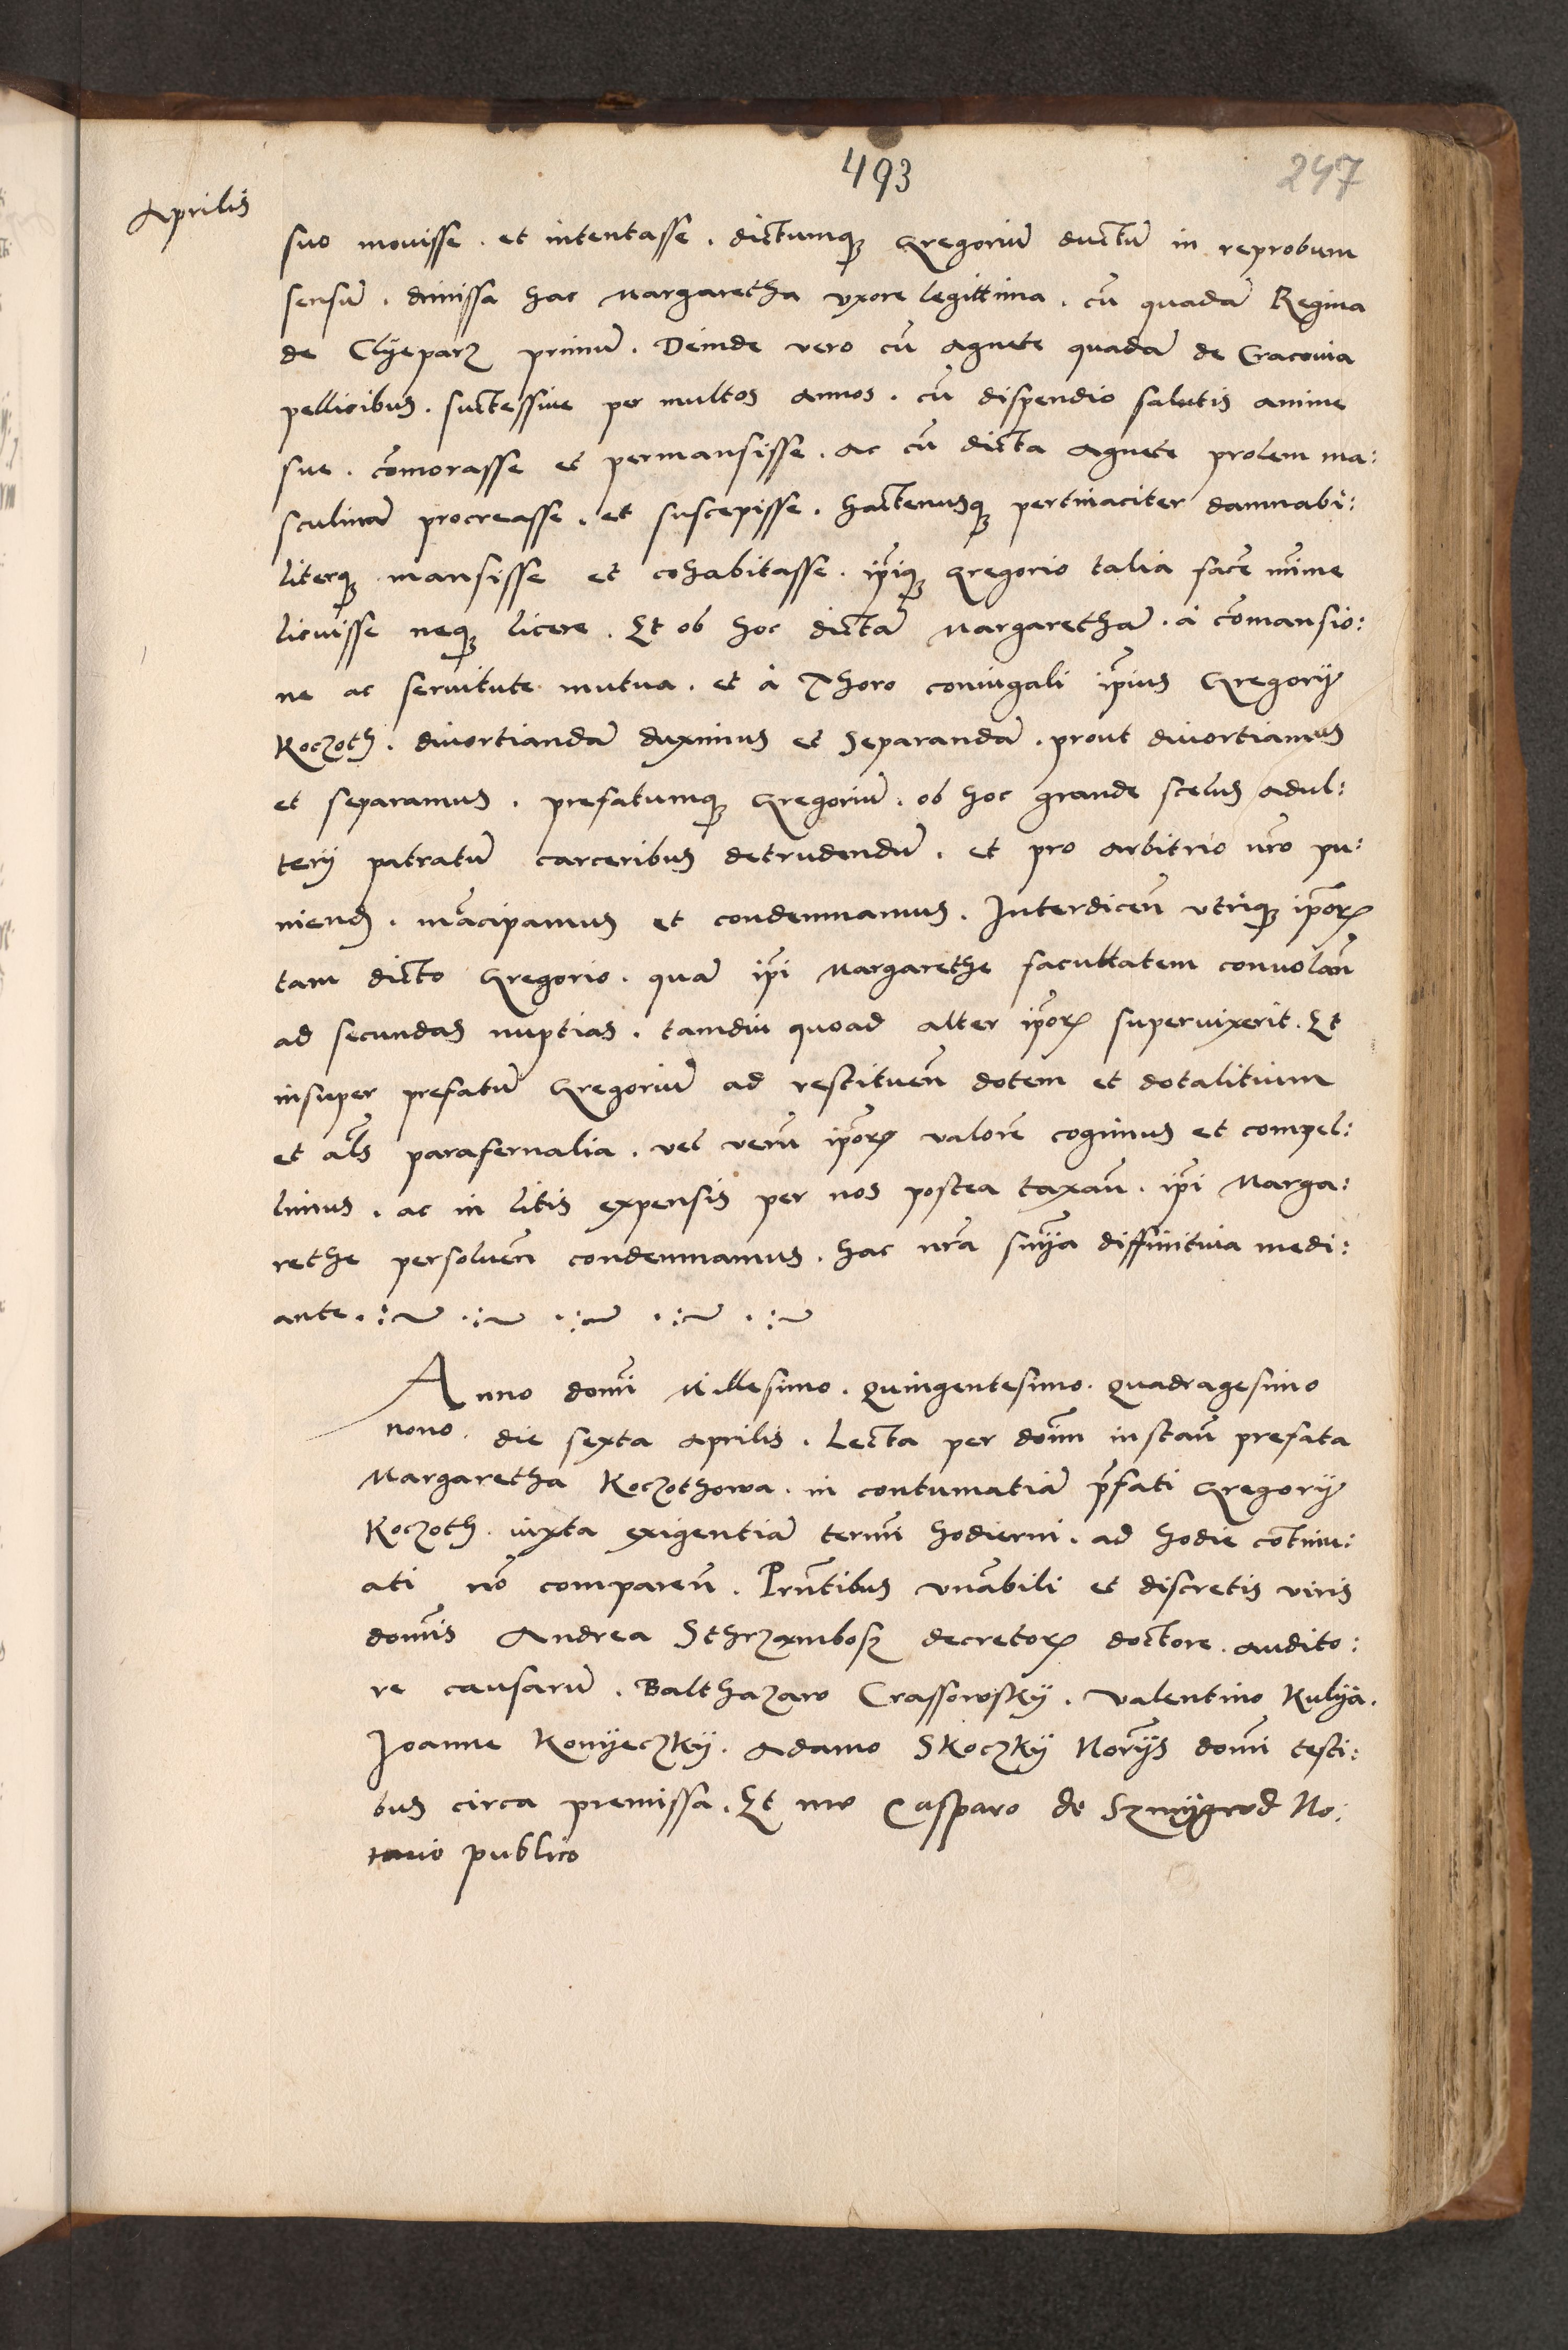 493
247
Aprilis
suo mouisse . et intentasse . dictumq3 Gregoriū ductū in reprobum
sensū . dimissa hac Margaretha vxore legittima . cū quadā Regina
de Clyeparz primū . Deinde vero cū Agnete quadā de Cracouia
pellicibus . successiue per multos annos . cū dispendio salutis anime
sue . cōmorasse et permansisse . ac cū dicta Agnete prolem ma:
sculinā procreasse . et suscepisse . hactenusq3 pertinaciter damnabi:
literq3 mansisse et cohabitasse . ip̄iq3 Gregorio talia facē mīme
licuisse neq3 licere . Et ob hoc dictā Margarethā . à cōmansio:
ne ac seruitute mutua . et à Thoro coniugali ip̄ius Gregorÿ
Koczoth . diuortiandā duximus et separandā . prout diuortiamus
et separamus . prefatumq3 Gregoriū . ob hoc grande scelus adul:
terÿ patratū carceribus detrudendū . et pro arbitrio nr̄o pu:
niend̄ . mācipamus et condemnamus . Interdiceñ vtriq3 ip̄oꝝ
tam dicto Gregorio . quā ip̄i Margarethe facultatem conuolañ
ad secundas nuptias . tamdiu quoad alter ip̄oꝝ superuixerit . Et
insuper prefatū Gregoriū ad restitueñ dotem et dotalitium
et al̄s parafernalia . vel verū ip̄oꝝ valorē cogimus et compel:
limus . ac in litis expensis per nos postea taxañ . ip̄i Marga:
rethe persolueñ condemnamus . hac nr̄a sn̄ia diffinitiua medi:
ante .
Anno domī Millesimo . quingentesimo . quadragesimo
nono . die sexta Aprilis . Lecta per dom̄ instañ prefata
Margaretha Koczothowa . in contumatiā p̄fati Gregorÿ
Koczoth . iuxta exigentiā termī hodierni . ad hodie cōtinu:
ati nō compareñ . Prn̄tibus vn̄abili et discretis viris
domīs Andrea Sthrzambosz decretoꝝ doctore . audito:
re causarū . Balthazaro Crassowsky . Valentino Kulya .
Joanne Konyeczky . Adamo Skoczky Nor̄ys domī testi:
bus circa premissa . Et me Casparo de Szmygrod No:
tario publico